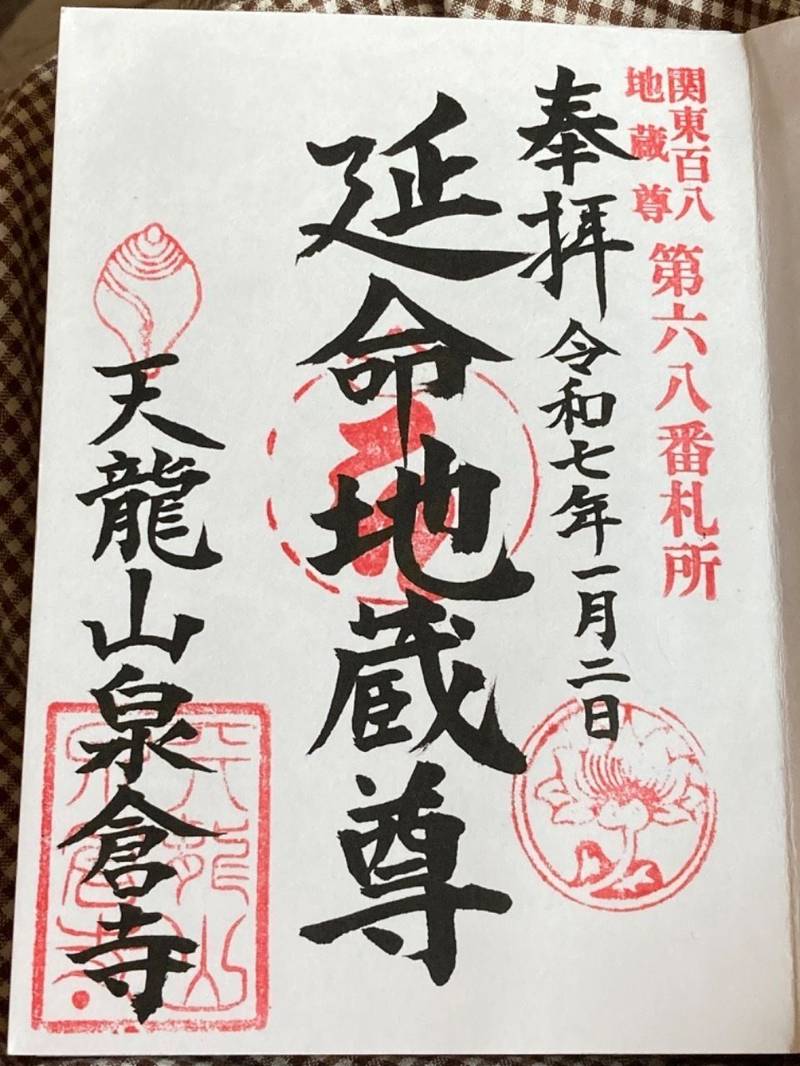 関東百八
地蔵尊
第六八番札所
奉拝
令和七年一月二日
延命地蔵尊
天龍山泉倉寺